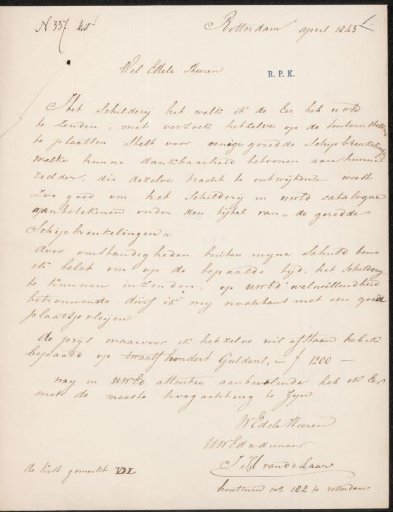 N 337. Rotterdam April 1843
Wel Edele Heeren
R.P.K.
Het Schildery het welk ik de Eer heb uwEd
te zenden, met verzoek hetzelve op de tentoonstelling
te plaatsen Stelt voor eenige geredde Schipbreukelingen
welke hunne dankbaarheid betoonen aan hunnen
redder, die dezelve tracht te ontwyken weest
Zoo goed om het Schildery in uwEd catalogue
aan te tekenen onder den tijtel van „ de geredde
Schipbreukelingen „
door omstandigheden buiten myne Schuld ben
ik belet om op de bepaalde tyd, het Schildery
te kunnen inzenden. op uwEd welwillendheid
betrouwende durf ik my nochtans met een goede
plaats vleyen
de prys waarvoor ik hetzelve wil afstaan heb ik
bepaald op twaalf honderd Guldens, — ƒ 1200 —
my in UwEd attentie aanbevelende heb ik Eer
met de meeste hoogachting te zyn
WEdele Heeren
UWEd dw dienaar
J H van de Laar
houttuin No 102 te rotterdam
de kist gemerkt VDL